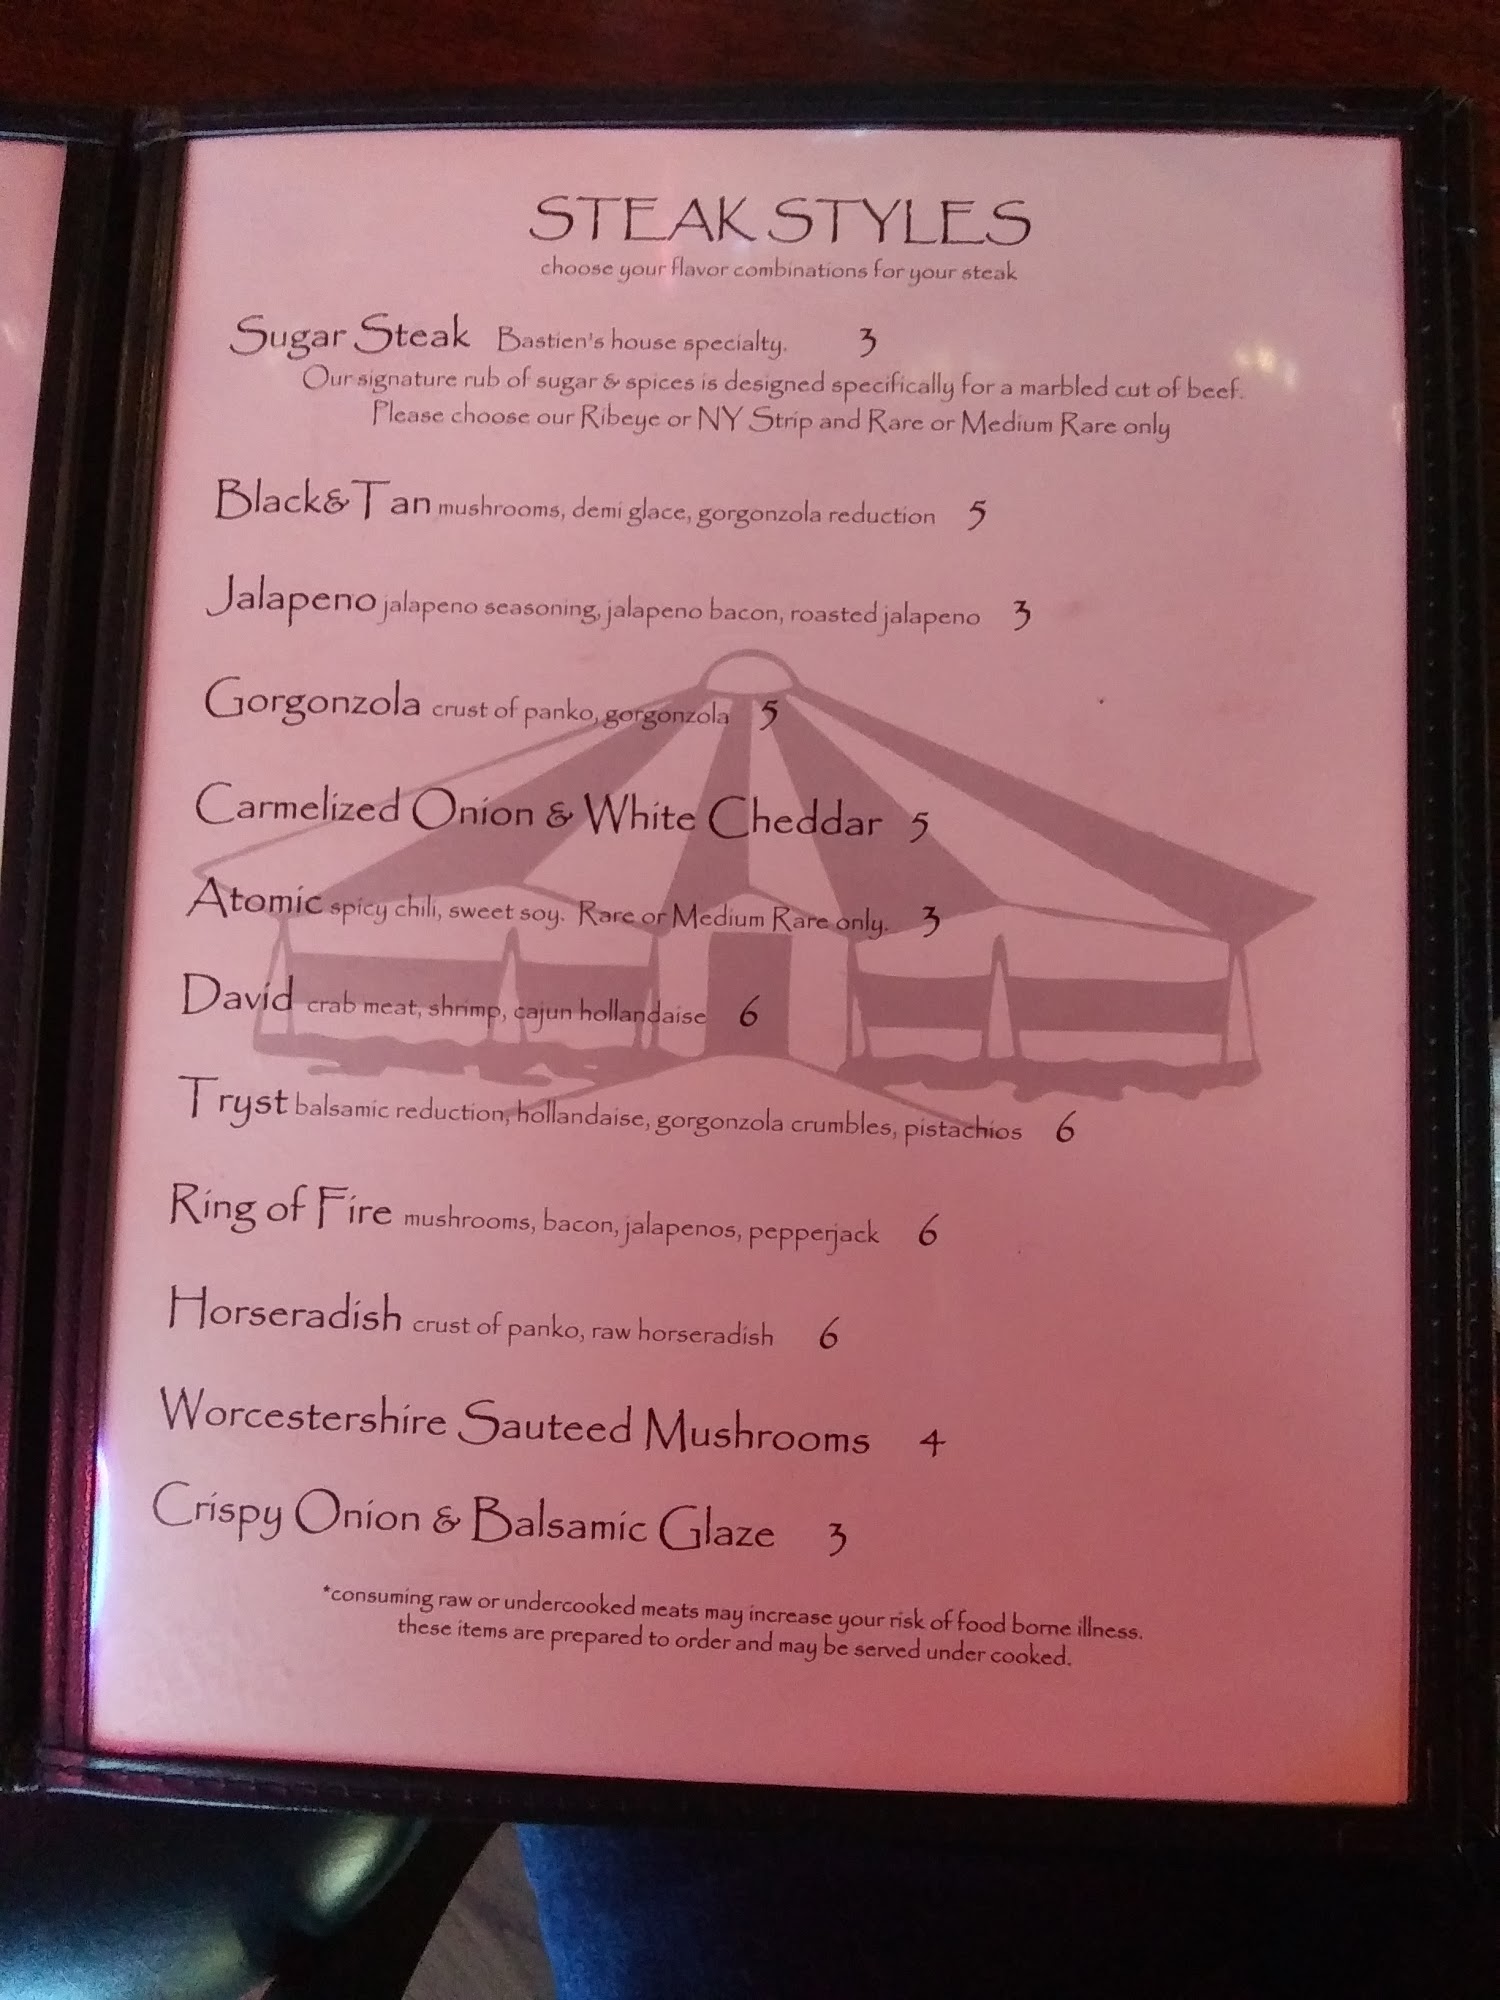 STEAK STYLES
choose your flavor combinations for your steak
Sugar Steak Bastien's house specialty. 3
Our signature rub of sugar & spices is designed specifically for a marbled cut of beef.
Please choose our Ribeye or NY Strip and Rare or Medium Rare only
Black&Tan mushrooms, demi glace, gorgonzola reduction 5
Jalapeno jalapeno seasoning, jalapeno bacon, roasted jalapeno 3
Gorgonzola crust of panko, gorgonzola 5
Carmelized Onion & White Cheddar 5
Atomic spicy chili, sweet soy. Rare or Medium Rare only. 3
David crab meat, shrimp, cajun hollandaise 6
Tryst balsamic reduction, hollandaise, gorgonzola crumbles, pistachios 6
Ring of Fire mushrooms, bacon, jalapenos, pepperjack 6
Horseradish crust of panko, raw horseradish 6
Worcestershire Sauteed Mushrooms 4
Crispy Onion & Balsamic Glaze 3
*consuming raw or undercooked meats may increase your risk of food borne illness.
these items are prepared to order and may be served under cooked.